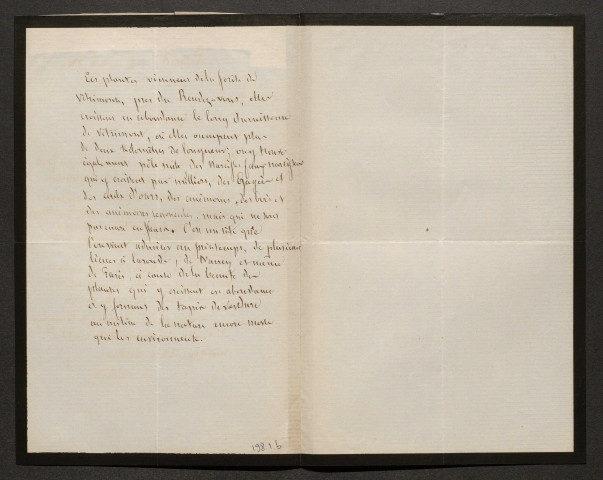 Ces plantes viennent de la forêt de
Vitrimont, près du Rendez-vous, elles
croissent en abondance le long du ruisseau
de Vitrimont, où elles occupent plus
de deux kilomètres de longueur; on y trouve
également pêle mêle des Narcisses
qui y croissent par milliers, des Gagea et
des aulx d'ours, des anémones des bois et
des anémones renoncules, mais qui ne sont
pas encore en fleurs. C'est un site que
l'on vient admirer au printemps, de plusieurs
lieues à la ronde, de Nancy et même
de Paris, à cause de la beauté des
plantes qui y croissent en abondance
et y forment des tapis de verdure
au milieu de la nature encore morte
qui les environnent.
1981 b